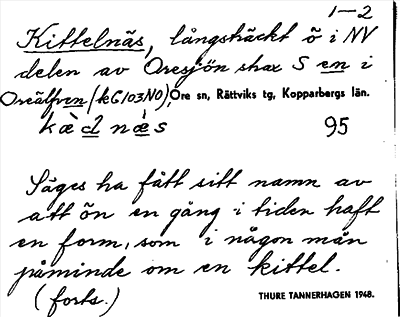 1–2
Kittelnäs, långsträckt ö i NV
delen av Oresjön strax S en i
Oreälfven (kG103NO), Ore sn, Rättviks tg, Kopparbergs län.
kæ̀d2 næ̀s 95
Säges ha fått sitt namn av
att ön en gång i tiden haft
en form, som i någon mån
påminde om en kittel.
(forts.) THURE TANNERHAGEN 1948.